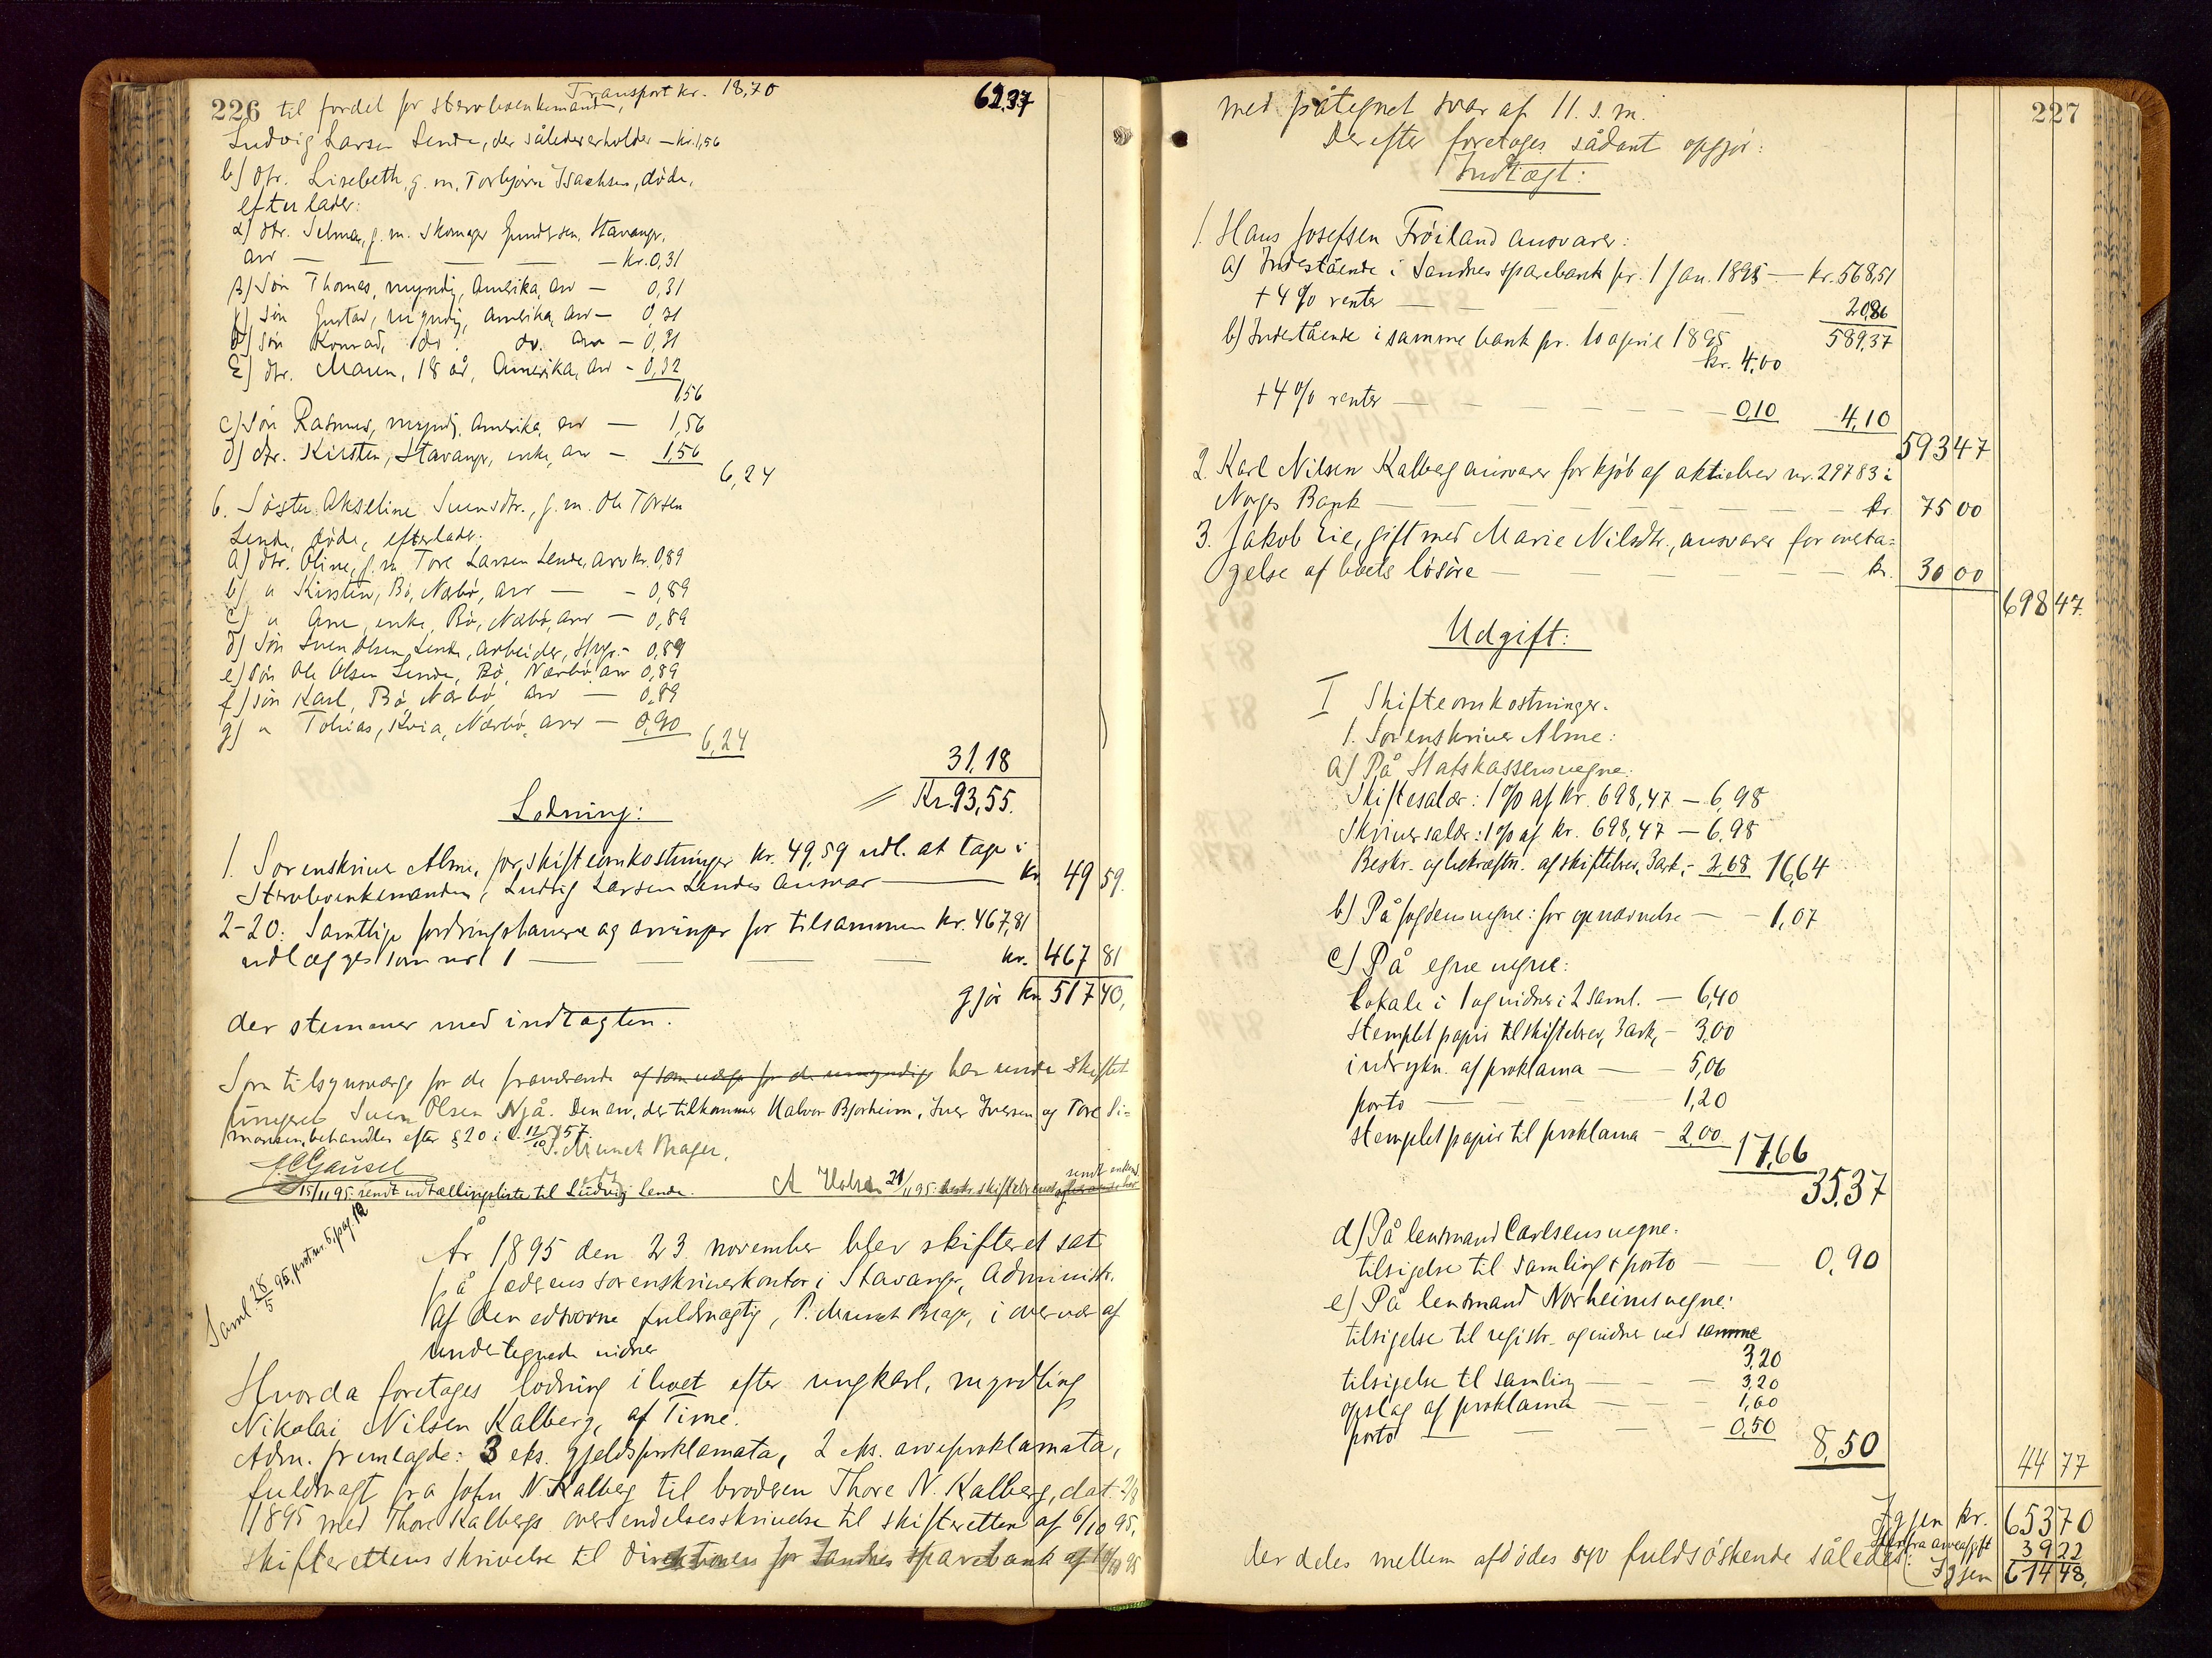 226 til fordel for sterboenkemand, Transport kr. 18,70 62,37
Ludvig Larsen Lende, der således erholder — kr. 1,56
b) dtr. Lisebeth, g. m. Torbjørn Isachsen, døde,
efterlader:
α) dtr. Selma, g. m. skomager Gundersen, Stavanger,
arv — — — — — kr. 0,31
β) søn Thomas, myndig, Amerika, arv — 0,31
γ) søn Gustav, myndig, Amerika, arv — 0,31
δ) søn Konrad, do: do. arv — 0,31
ε) dtr. Maren, 18 år, Amerika, arv - 0,32
1,56
c) søn Rasmus, myndig, Amerika, arv — 1,56
d) dtr. Kirsten, Stavanger, enke, arv — 1,56
6,24
6. Søster Akseline Svensdtr., g. m. Ole Torsen
Lende, døde, efterlader:
a) dtr. Oline, g. m. Tore Larsen Lende, arv kr. 0,89
b) " Kirsten, Bø, Nærbø, arv — - 0,89
c) " Ane, enke, Bø, Nærbø, arv — 0,89
d) søn Sven Olsen Lende, arbeider, Stvgr. - 0,89
e) søn Ole Olsen Lende, Bø, Nærbø, arv 0,89
f) søn Karl, Bø, Nærbø, arv — 0,89
g) " Tobias, Kvia, Nærbø, arv — 0,90
6,24
31,18
Kr. 93,55.
Lodning:
1. Sorenskriver Alme, for skifteomkostninger kr. 49,59 udl. at tage i
Sterboenkemanden, Ludvig Larsen Lendes ansvar — kr. 49 59.
2-20: Samtlige fordringshavere og arvinger for tilsammen kr. 467,81
udlægges som ved 1 — — — — kr. 467 81
gjør kr. 517 40,
der stemmer med indtægten.
Som tilsynsværge for de fraværende af som værge for de umyndige har under skiftet
fungeret Sven Olsen Njå. Den arv, der tilkommer Halvor Bjorheim, Iver Iversen og Tore Si-
monsen, behandles efter § 20 i l. 12/10 57.
P. Munch Brager,
J. C. Gausel
15/11 95: sendt udtællingsliste til Ludvig Lende. A 21/11 95: skiftebrev sendt enkem.
Saml. 28/5 95, prot. nr. 5, pag. 12
År 1895 den 23 november blev skifteret sat
på Jædrens sorenskriverkontor i Stavanger, Administr.
af den edsvorne fuldmægtig, P. Munch Brager, i overvær af
undertegnede vidner
Hvorda foretages lodning i boet efter ungkarl, myndling
Nikolai Nilsen Kalberg, af Time.
Adm. fremlagde: 3 eks. gjeldsproklamata, 2 eks. arveproklamata,
fuldmagt fra John N. Kalberg til broderen Thore N. Kalberg, dat.
1895 med Thore Kalbergs oversendelsesskrivelse til skifteretten af 6/10 95,
skifterettens skrivelse til direktionen for Sandnes sparebank af
227
med påtegnet svar af 11. s. m.
Derefter foretages sådant opgjør:
Indtægt:
1. Hans Josefsen Frøiland ansvarer:
a) Indestående i Sandnes sparebank pr. 1 Jan. 1895 — kr. 568,51
+ 4 % renter — — — — 20,86
589,37
b) Indestående i samme bank pr. 10 april 1895
kr. 4,00
+ 4 % renter — — — — 0,10 4,10
593 47
2. Karl Nilsen Kalberg ansvarer for kjøb af aktiebrev nr. 29783 i
Norges Bank — — — — kr. 75 00
3. Jakob Lie, gift med Marie Nilsdtr., ansvarer for overta-
gelse af boets løsøre — — — kr. 30 00
698 47.
Udgift:
I Skifteomkostninger.
1. Sorenskriver Alme:
a) På Statskassens vegne:
Skiftesalær: 1 % af kr. 698,47 — 6,98
Skriversalær: 1 % af kr. 698,47 — 6,98
Beskr. og bekræftn. af skiftebrev, 3 ark, - 2,68 16,64
b) På fogdens vegne: for opnævnelse — - 1,07
c) På egne vegne:
Lokale i 1 og vidner i 2 saml. — 6,40
stemplet papir til skiftebrev, 3 ark, - 3,00
indrykn. af proklama — - 5,06
porto — — — 1,20
stemplet papir til proklama - 2,00.
17,66
35,37
d) På lensmand Carlsens vegne:
tilsigelse til samling & porto — — 0,90
e) På lensmand Norheims vegne:
tilsigelse til registr. og vidner ved samme
3,20
tilsigelse til samling — — - 3,20
opslag af proklama — - 1,60
porto — — - 0,50
8,50
44 77
Igjen kr. 653 70
Herfra arveafgift 39 22
der deles mellem afdødes syv fuldsøskende således: Igjen 614 48,